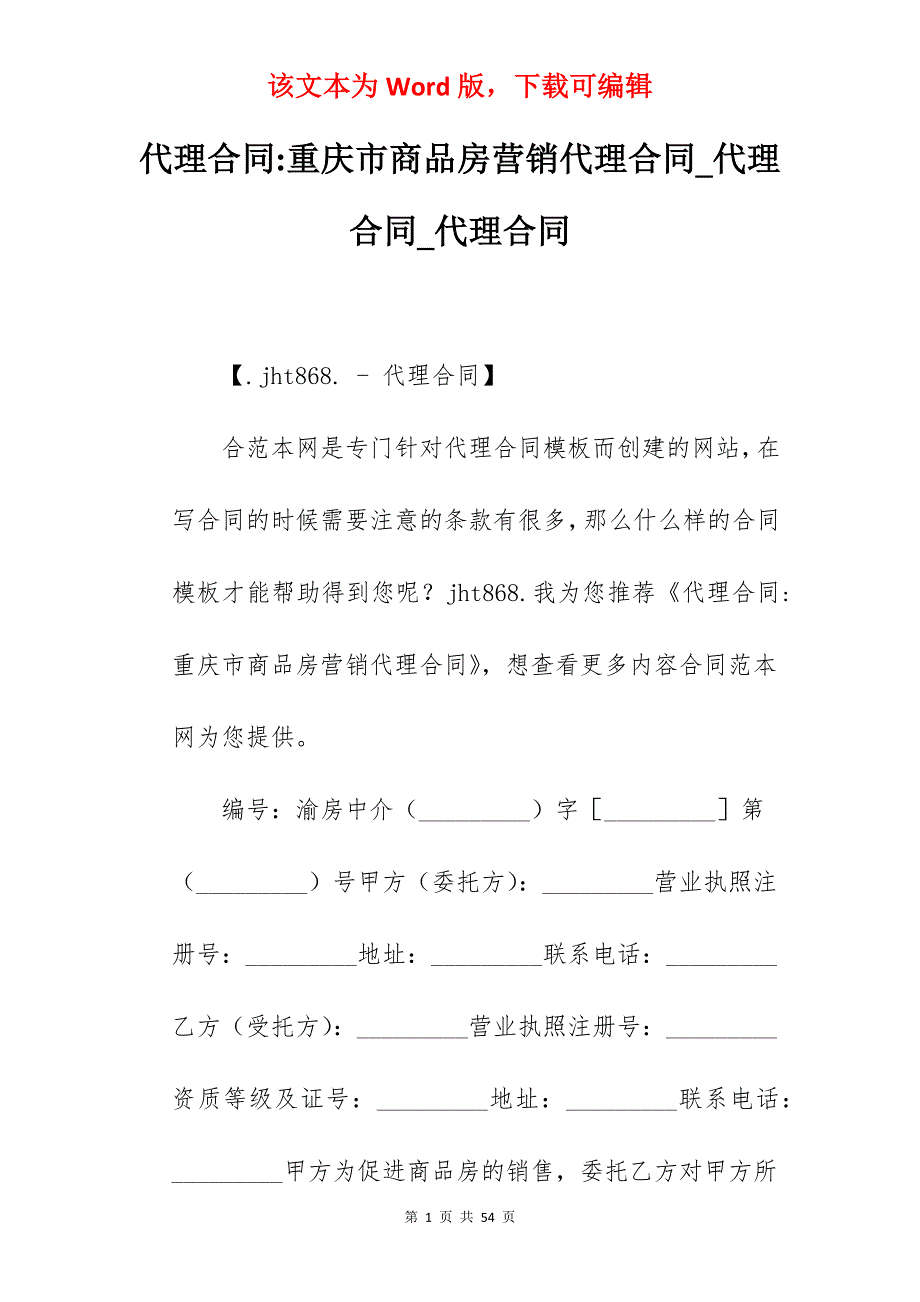 该文本为 Word 版，下载可编辑
代理合同:重庆市商品房营销代理合同_代理
合同_代理合同
【.jht868. - 代理合同】
合范本网是专门针对代理合同模板而创建的网站,在
写合同的时候需要注意的条款有很多,那么什么样的合同
模板才能帮助得到您呢？jht868.我为您推荐《代理合同:
重庆市商品房营销代理合同》，想查看更多内容合同范本
网为您提供。
编号：渝房中介（_________）字［_________］第
（_________）号甲方（委托方）：_________营业执照注
册号：_________地址：_________联系电话：_________
乙方（受托方）：_________营业执照注册号：_________
资质等级及证号：_________地址：_________联系电话：
_________甲方为促进商品房的销售，委托乙方对甲方所
第 1 页 共 54 页